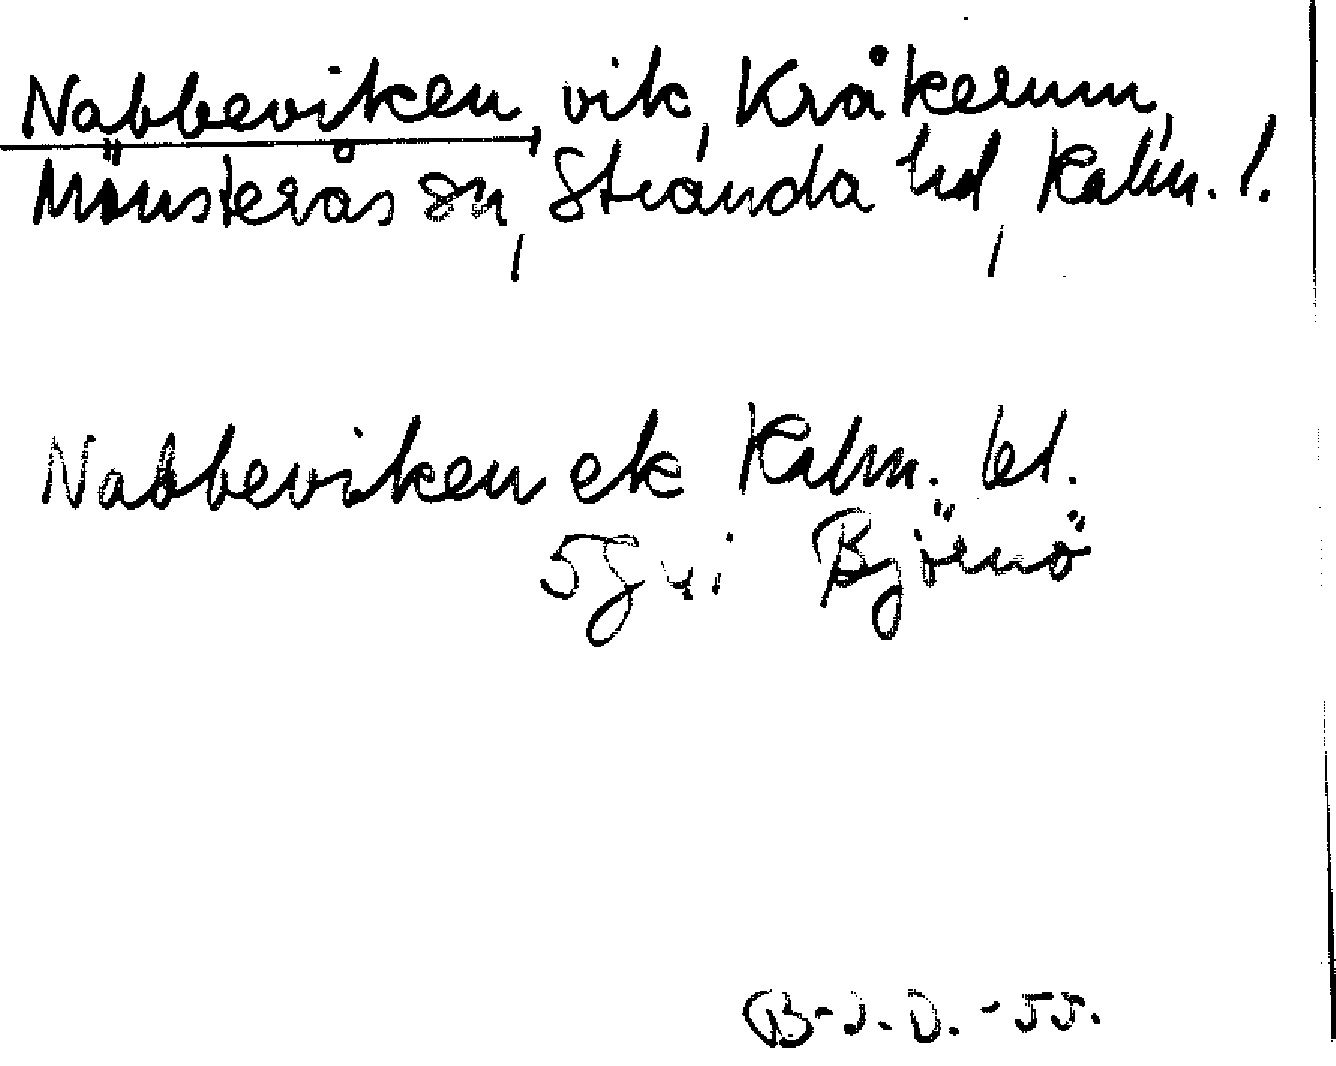 Nabbeviken, vik, Kråkerum,
Mönsterås sn, Stranda hd, Kalm. l.
Nabbeviken ek Kalm. bl.
5Gvi Björnö
B-J.D.-55.